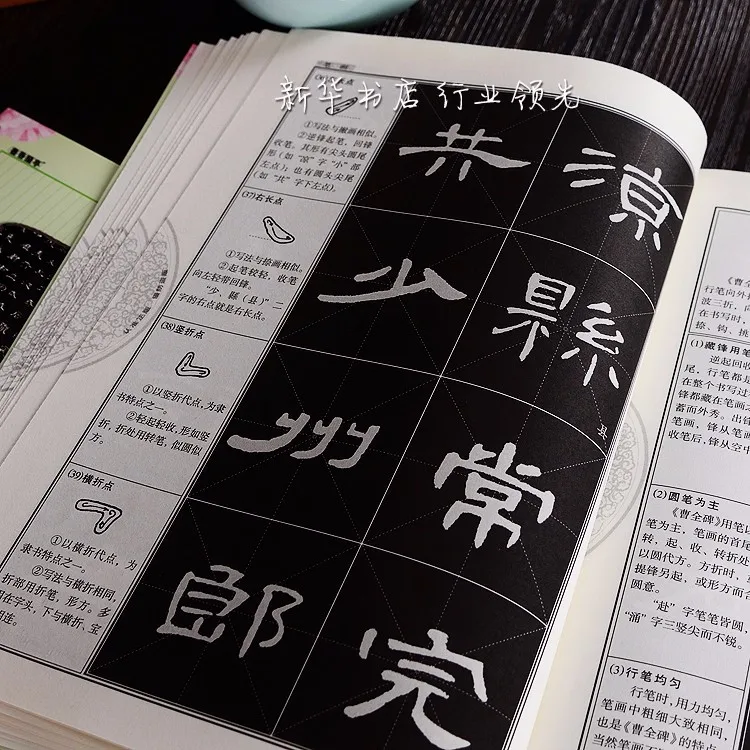 新华书店 行业领先
笔画
①写法与撇画相似。
②逆锋起笔，回锋
收笔。其形有尖头圆尾
形（如“凉”字“小”部
左点）；也有圆头尖尾
（如“共”字下左点）。
(37)右长点
①写法与捺画相似。
②起笔较轻，收笔
向左轻带回锋。
“少、县（县）”二
字的右点就是右长点。
(38)竖折点
①以竖折代点，为隶
书特点之一。
②轻起轻收，形如竖
折，折处用转笔，似圆似
方。
(39)横折点
①以横折代点，为
隶书特点之一。
②写法与横折相同，
折部用折笔，形方。多
用在字头，下与横折、宝
相连。
共 凉
少 縣
州 常
郎 完
县
《曹全
行笔向外
波三折，向
在书写时，
捺、钩、挑
(1)藏锋用笔
逆起回收
尾，行笔都是
在整个书写过
锋都藏在笔画
蓄而外秀。出锋
笔画，锋从笔画
收笔后，锋从空中
(2)圆笔为主
《曹全碑》用笔以
笔为主，笔画的首尾
转，起、收、转折处
以圆代方。方折时，
提锋另起，或形方而含
圆意。
“赴”字笔笔皆圆，
“涌”字三竖尖而不锐。
(3)行笔均匀
行笔时，用力均匀，
笔画中粗细大致相同，
也是《曹全碑》的特点
当然笔画